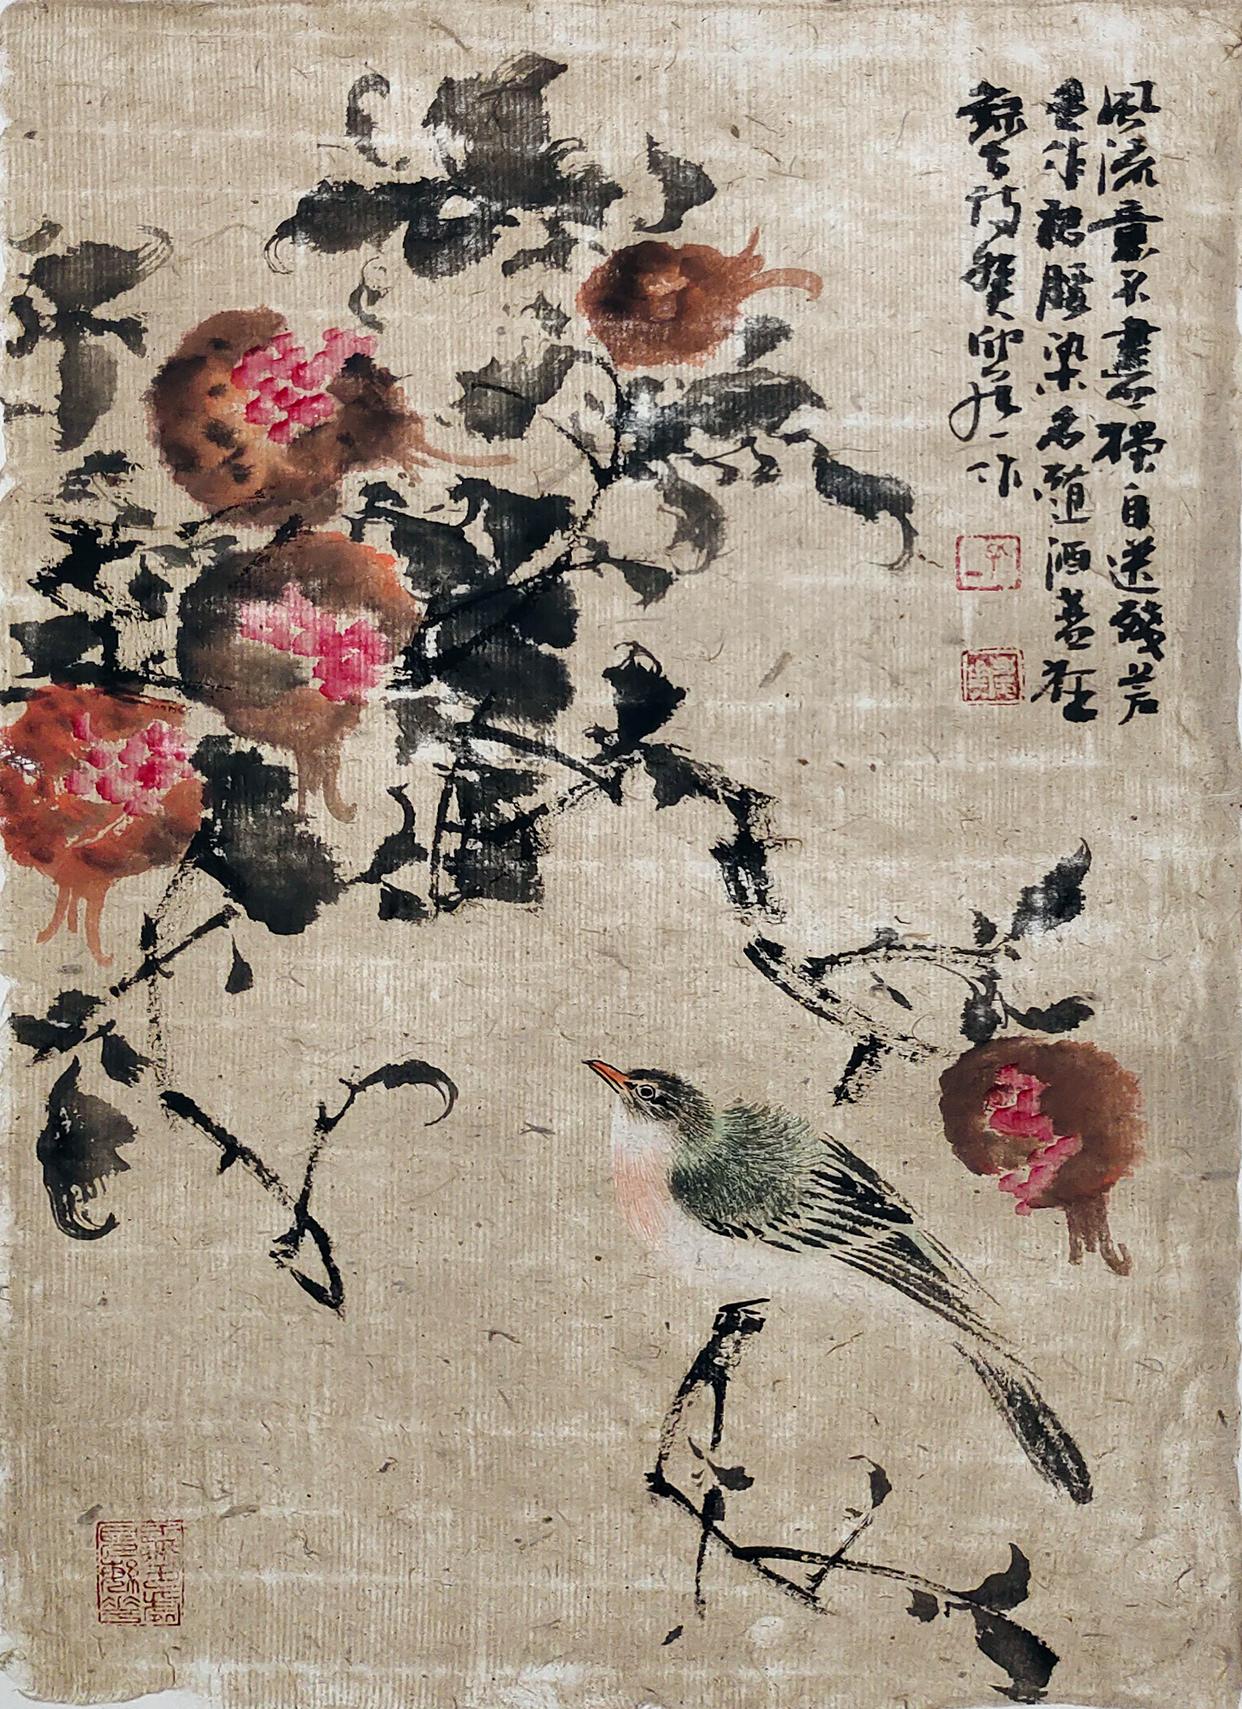 風流意不盡獨自送殘芳
色作裙腰染名隨酒盞狂
錄古詩癸卯一作